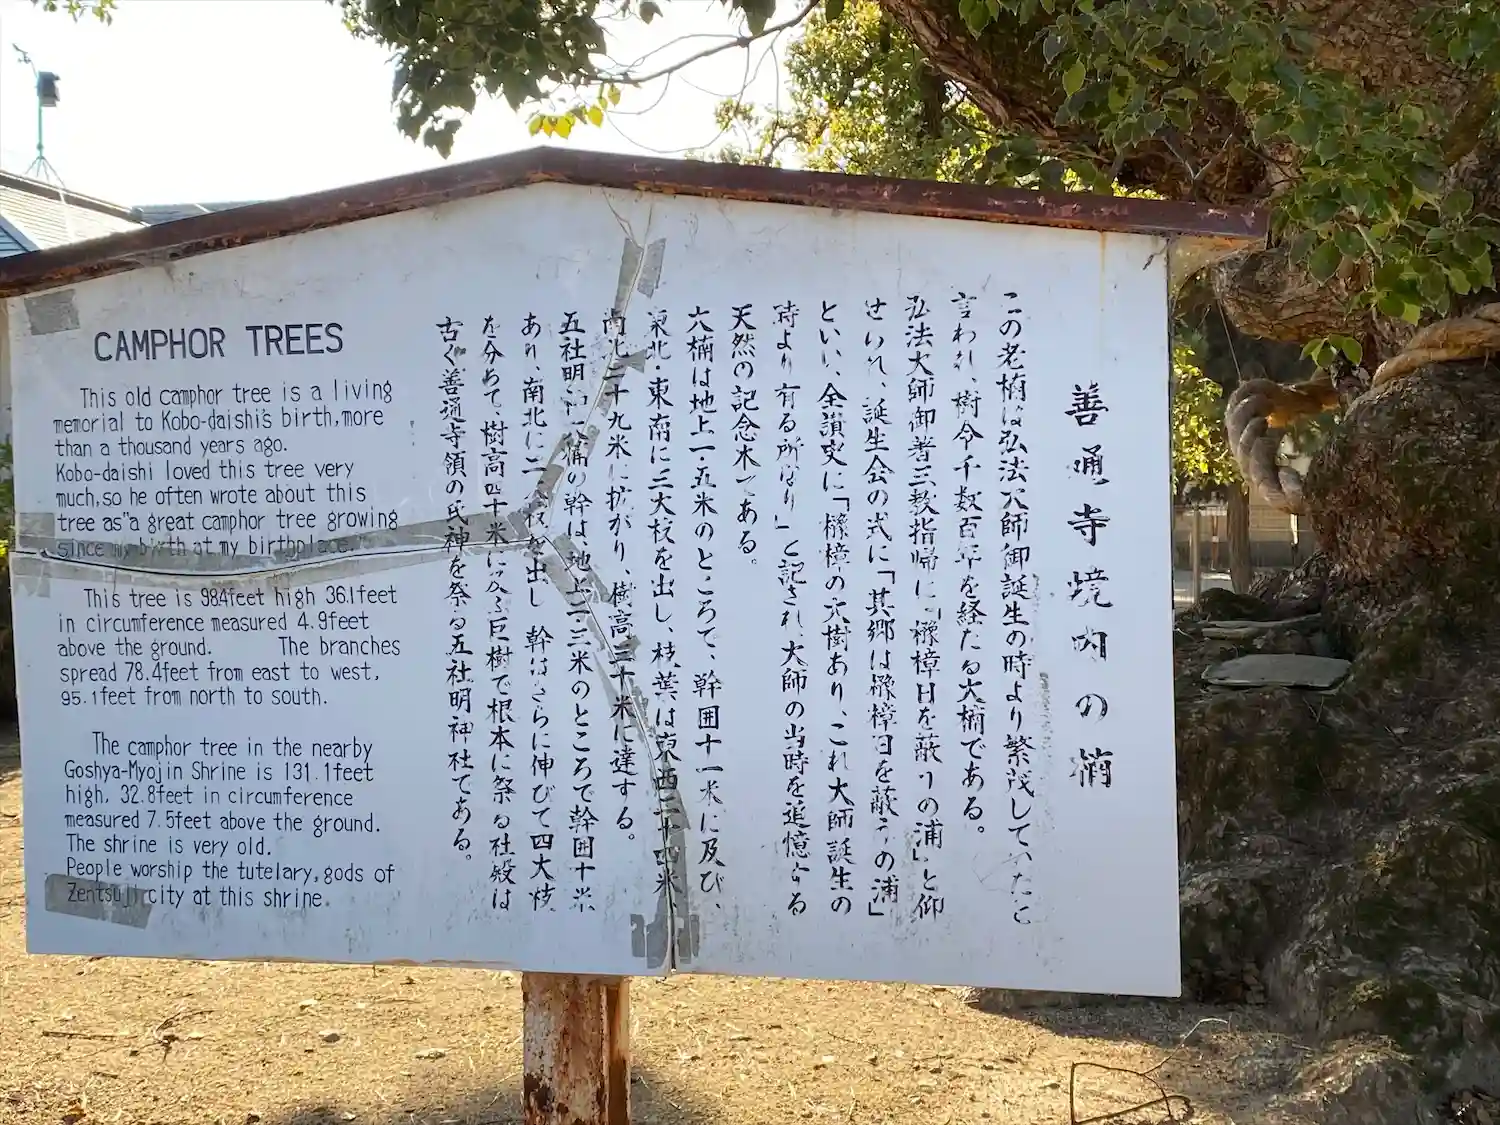 CAMPHOR TREES
This old camphor tree is a living
memorial to Kobo-daishi's birth, more
than a thousand years ago.
Kobo-daishi loved this tree very
much, so he often wrote about this
tree as "a great camphor tree growing
since my birth at my birthplace."
This tree is 98.4feet high 36.1feet
in circumference measured 4.9feet
above the ground. The branches
spread 78.4feet from east to west,
95.1feet from north to south.
The camphor tree in the nearby
Goshya-Myojin Shrine is 131.1feet
high, 32.8feet in circumference
measured 7.5feet above the ground.
The shrine is very old.
People worship the tutelary, gods of
Zentsuji city at this shrine.
善通寺境内の楠
この老楠は弘法大師御誕生の時より繁茂していたと
言われ、樹令千数百年を経たる大楠である。
弘法大師御著三教指帰に「櫲樟日を蔽うの浦」と仰
せられ、誕生会の式に「其郷は櫲樟日を蔽うの浦」
といい、全讃史に「櫲樟の大樹あり、これ大師誕生の
時より有る所なり」と記され、大師の当時を追憶する
天然の記念木である。
大楠は地上一・五米のところで、幹囲十一米に及び、
東北・東南に三大枝を出し、枝葉は東西二十四米、
南北二十九米に拡がり、樹高三十米に達する。
五社明神の楠の幹は、地上二・三米のところで幹囲十米
あり、南北に二枝を出し幹はさらに伸びて四大枝
を分ちて、樹高四十米に及ぶ巨樹で根本に祭る社殿は
古く善通寺領の氏神を祭る五社明神社である。